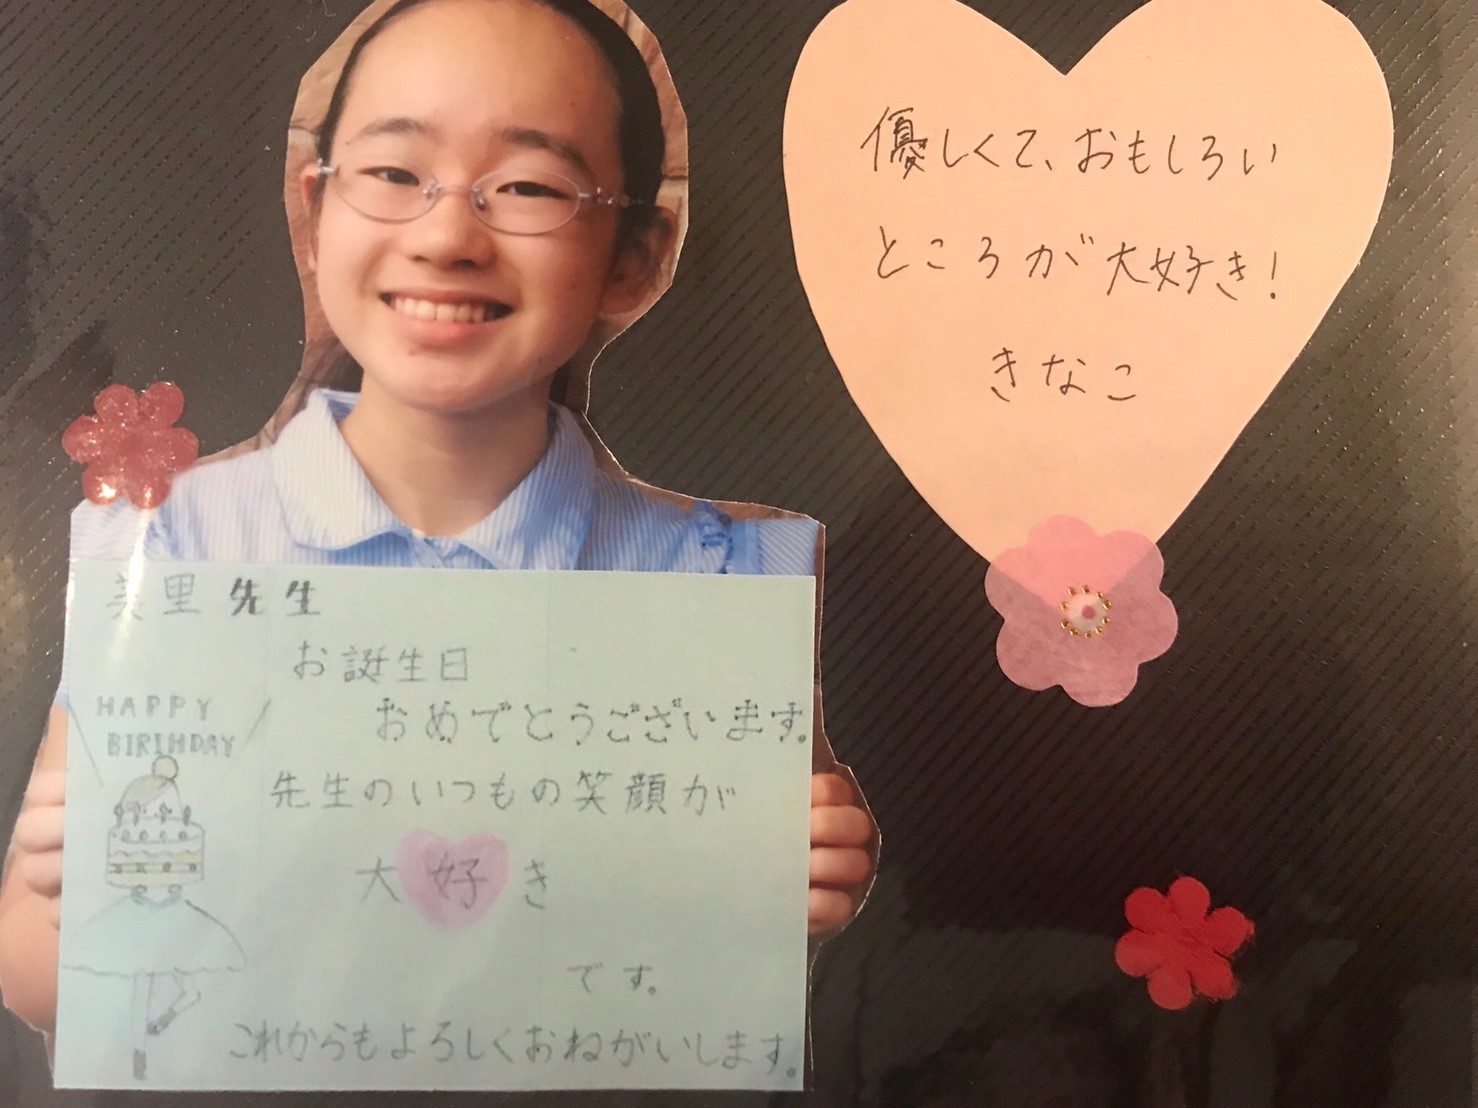 優しくて、おもしろい
ところが大好き!
きなこ
美里先生
お誕生日
おめでとうございます。
HAPPY
BIRIHDAY
先生のいつもの笑顔が
大好き
です。
これからもよろしくおねがいします。